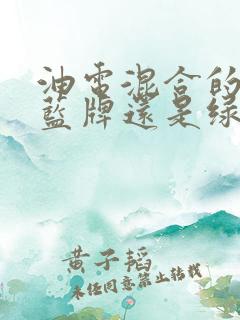 油电混合的
蓝牌还是绿
黄子韬
未经同意禁止转载